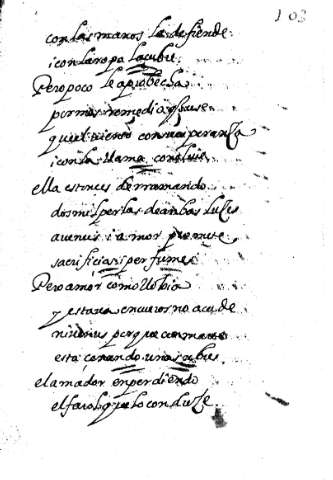 103
con las manos la defiende
i con la ropa la cubre
Pero poco le aprobecha
por mas remedio q̃ buse
quel biento con su esperanza
i con la llama concluie
ella estonces derramando
dos mil perlas de ambas luzes
a uenus i a mor promete
sacrificias i perfumes
Pero amor como llobia
y estaua encueros no acude
ni uenus porque con marte
esta cenando unas ubes
el amador en perdiendo
el farol que lo conduze